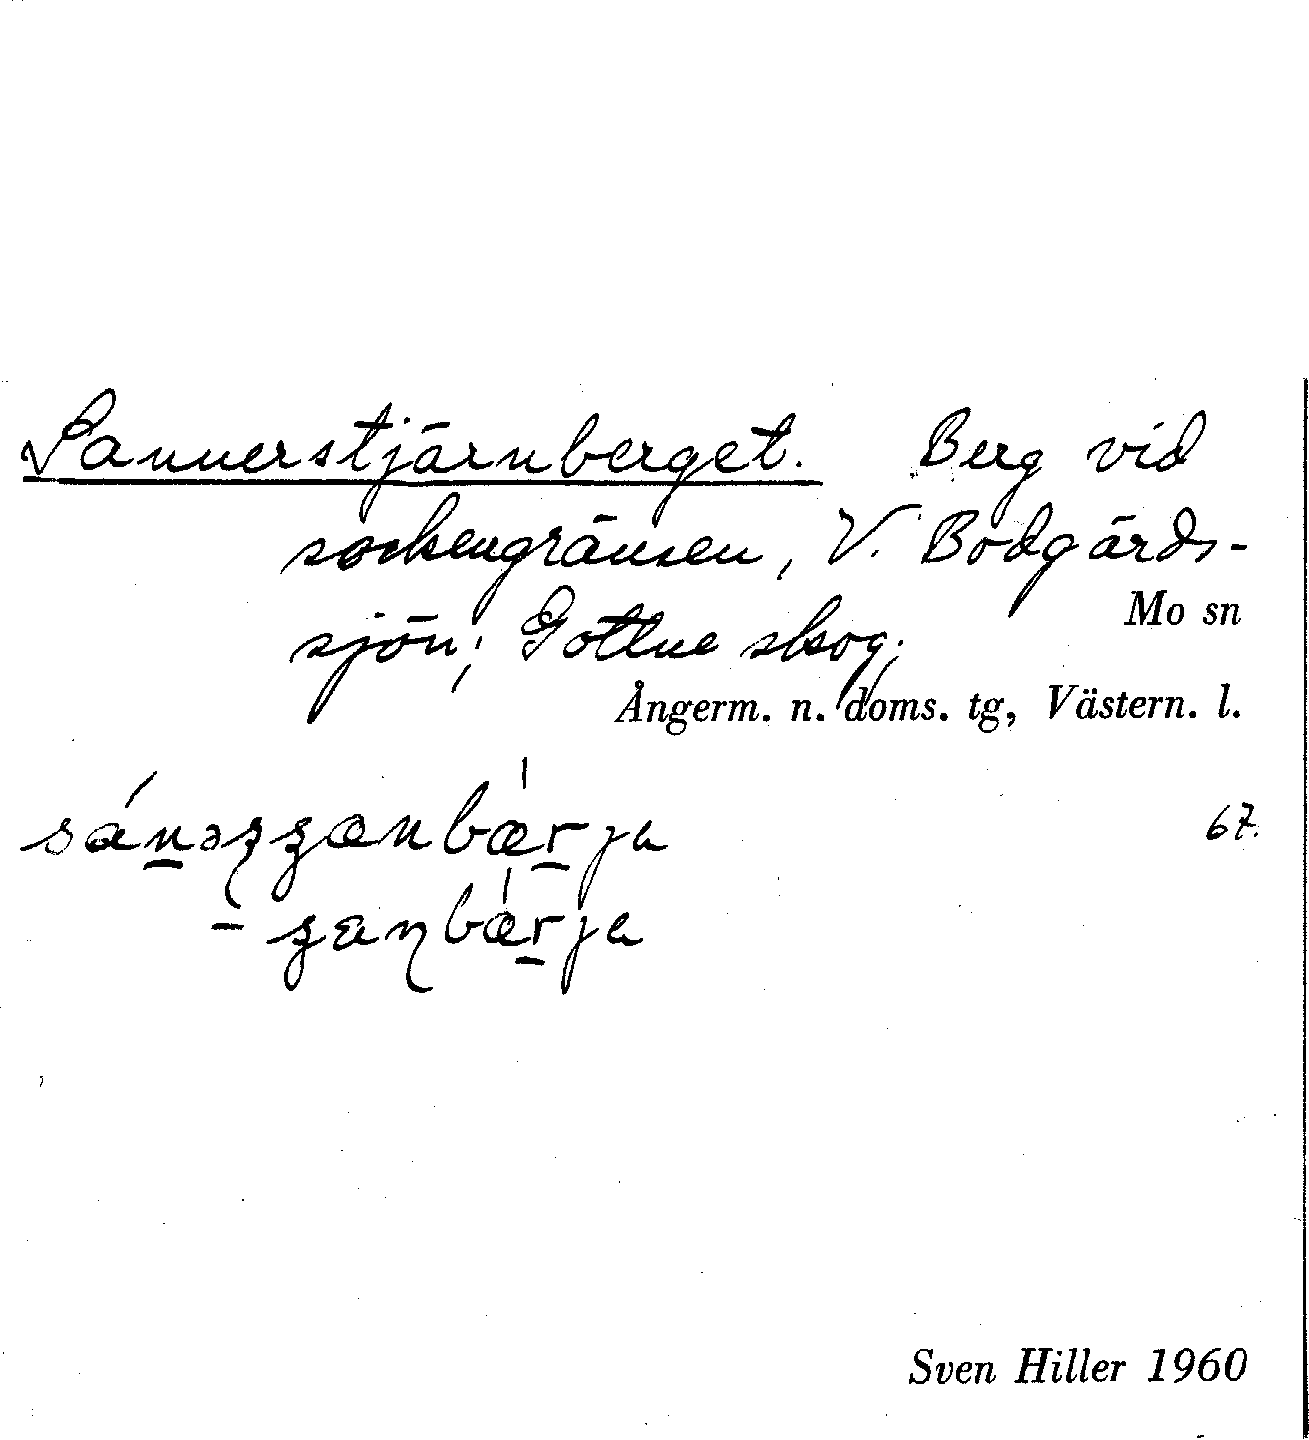 Sannerstjärnberget. Berg vid
sockengränsen, V. Bodgärds-
sjön; Gottne skog.
Mo sn
Ångerm. n. doms. tg, Västern. l.
67.
Sven Hiller 1960